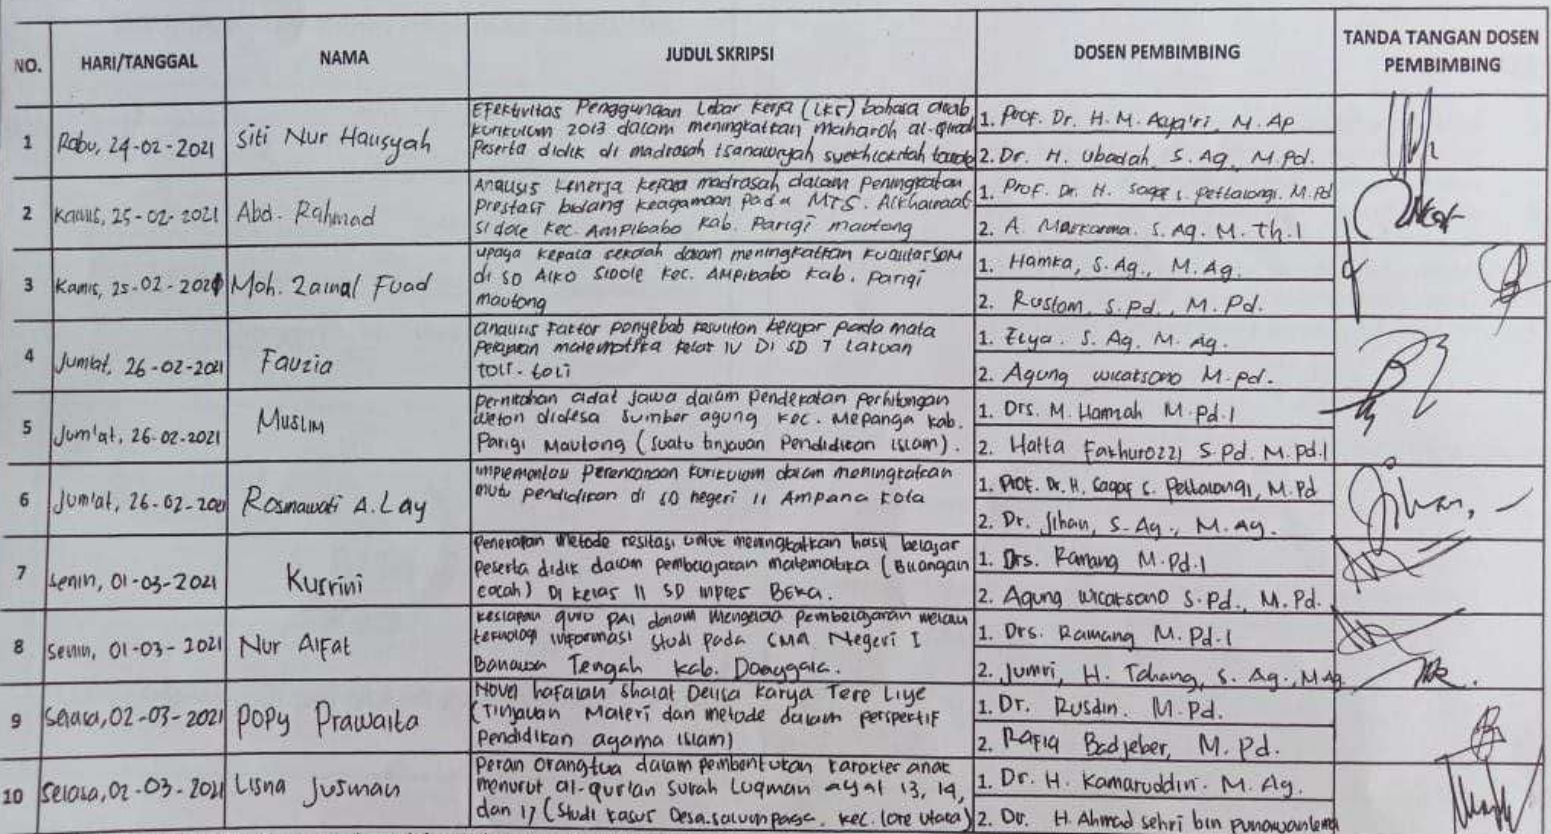 NO. HARI/TANGGAL NAMA JUDUL SKRIPSI DOSEN PEMBIMBING TANDA TANGAN DOSEN PEMBIMBING
1 Rabu, 24-02-2021 Siti Nur Haisyah
Efektivitas Penggunaan Lebar Kerja (LKS) bahasa arab
kurikulum 2013 dalam meningkatkan maharoh al-qiraah
Peserta didik di madrasah tsanawiyah
1. Prof. Dr. H. M. Asya'ri, M. Ap
2. Dr. H. Ubadah, S. Ag, M. Pd.
2 Kamis, 25-02-2021 Abd. Rahmad
Analisis kenerja kepala madrasah dalam Peningkatan
Prestasi bidang keagamaan pada MTS. Alkhairaat
Sidole Kec. Ampibabo Kab. Parigi moutong
1. Prof. Dr. H. Sagaf S. Pettalongi, M. Pd
2. A. Markarma. S. Ag. M. Th. I
3 Kamis, 25-02-2021 Moh. Zainal Fuad
upaya kepala sekolah dalam meningkatkan kualitas SDM
di SD Alko Sidole Kec. Ampibabo Kab. Parigi
moutong
1. Hamka, S. Ag., M. Ag.
2. Rustam, S. Pd., M. Pd.
4 Jum'at, 26-02-2021 Fauzia
analisis Faktor penyebab kesulitan belajar pada mata
Pelajaran matematika kelas IV DI SD 7 Lakuan
toli-toli
1. Elya. S. Ag. M. Ag.
2. Agung wicaksono M. pd.
5 Jum'at, 26-02-2021 Muslim
Pernikahan adat jawa dalam Pendekatan Perhitungan
weton didesa Sumber agung Kec. Mepanga kab.
Parigi Moutong (Suatu tinjauan Pendidikan islam).
1. Drs. M. Hamzah M. Pd. I
2. Hatta Fakhurozzi S. Pd. M. Pd. I
6 Jum'at, 26-02-2021 Rosnawati A. Lay
implementasi Perencanaan kurikulum dalam meningkatkan
mutu pendidikan di SD negeri 11 Ampana kota
1. Prof. Dr. H. Sagaf S. Pettalongi, M. Pd
2. Dr. Jihan, S. Ag., M. Ag.
7 senin, 01-03-2021 Kusrini
Penerapan Metode resitasi untuk meningkatkan hasil belajar
peserta didik dalam pembelajaran matematika (Bilangan
cacah) Di kelas II SD inpres Beka.
1. Drs. Ramang M. Pd. I
2. Agung Wicaksono S. Pd., M. Pd.
8 senin, 01-03-2021 Nur Alfat
kesiapan guru PAI dalam Mengelola Pembelajaran melalui
teknologi informasi studi pada SMA Negeri I
Banawa Tengah kab. Donggala.
1. Drs. Ramang M. Pd. I
2. Jumri, H. Tahang, S. Ag., M Ag.
9 Selasa, 02-03-2021 Popy Prawaita
Novel hafalan shalat Delisa Karya Tere Liye
(Tinjauan Materi dan metode dalam perspektif
Pendidikan agama islam)
1. Dr. Rusdin. M. Pd.
2. Rafiq Badjeber, M. Pd.
10 Selasa, 02-03-2021 Lisna Jusman
Peran Orangtua dalam pembentukan karakter anak
menurut al-qur'an surah Luqman ayat 13, 14,
dan 17 (Studi kasus Desa. kec. lore utara)
1. Dr. H. Kamaruddin. M. Ag.
2. Dr. H. Ahmad sehri bin